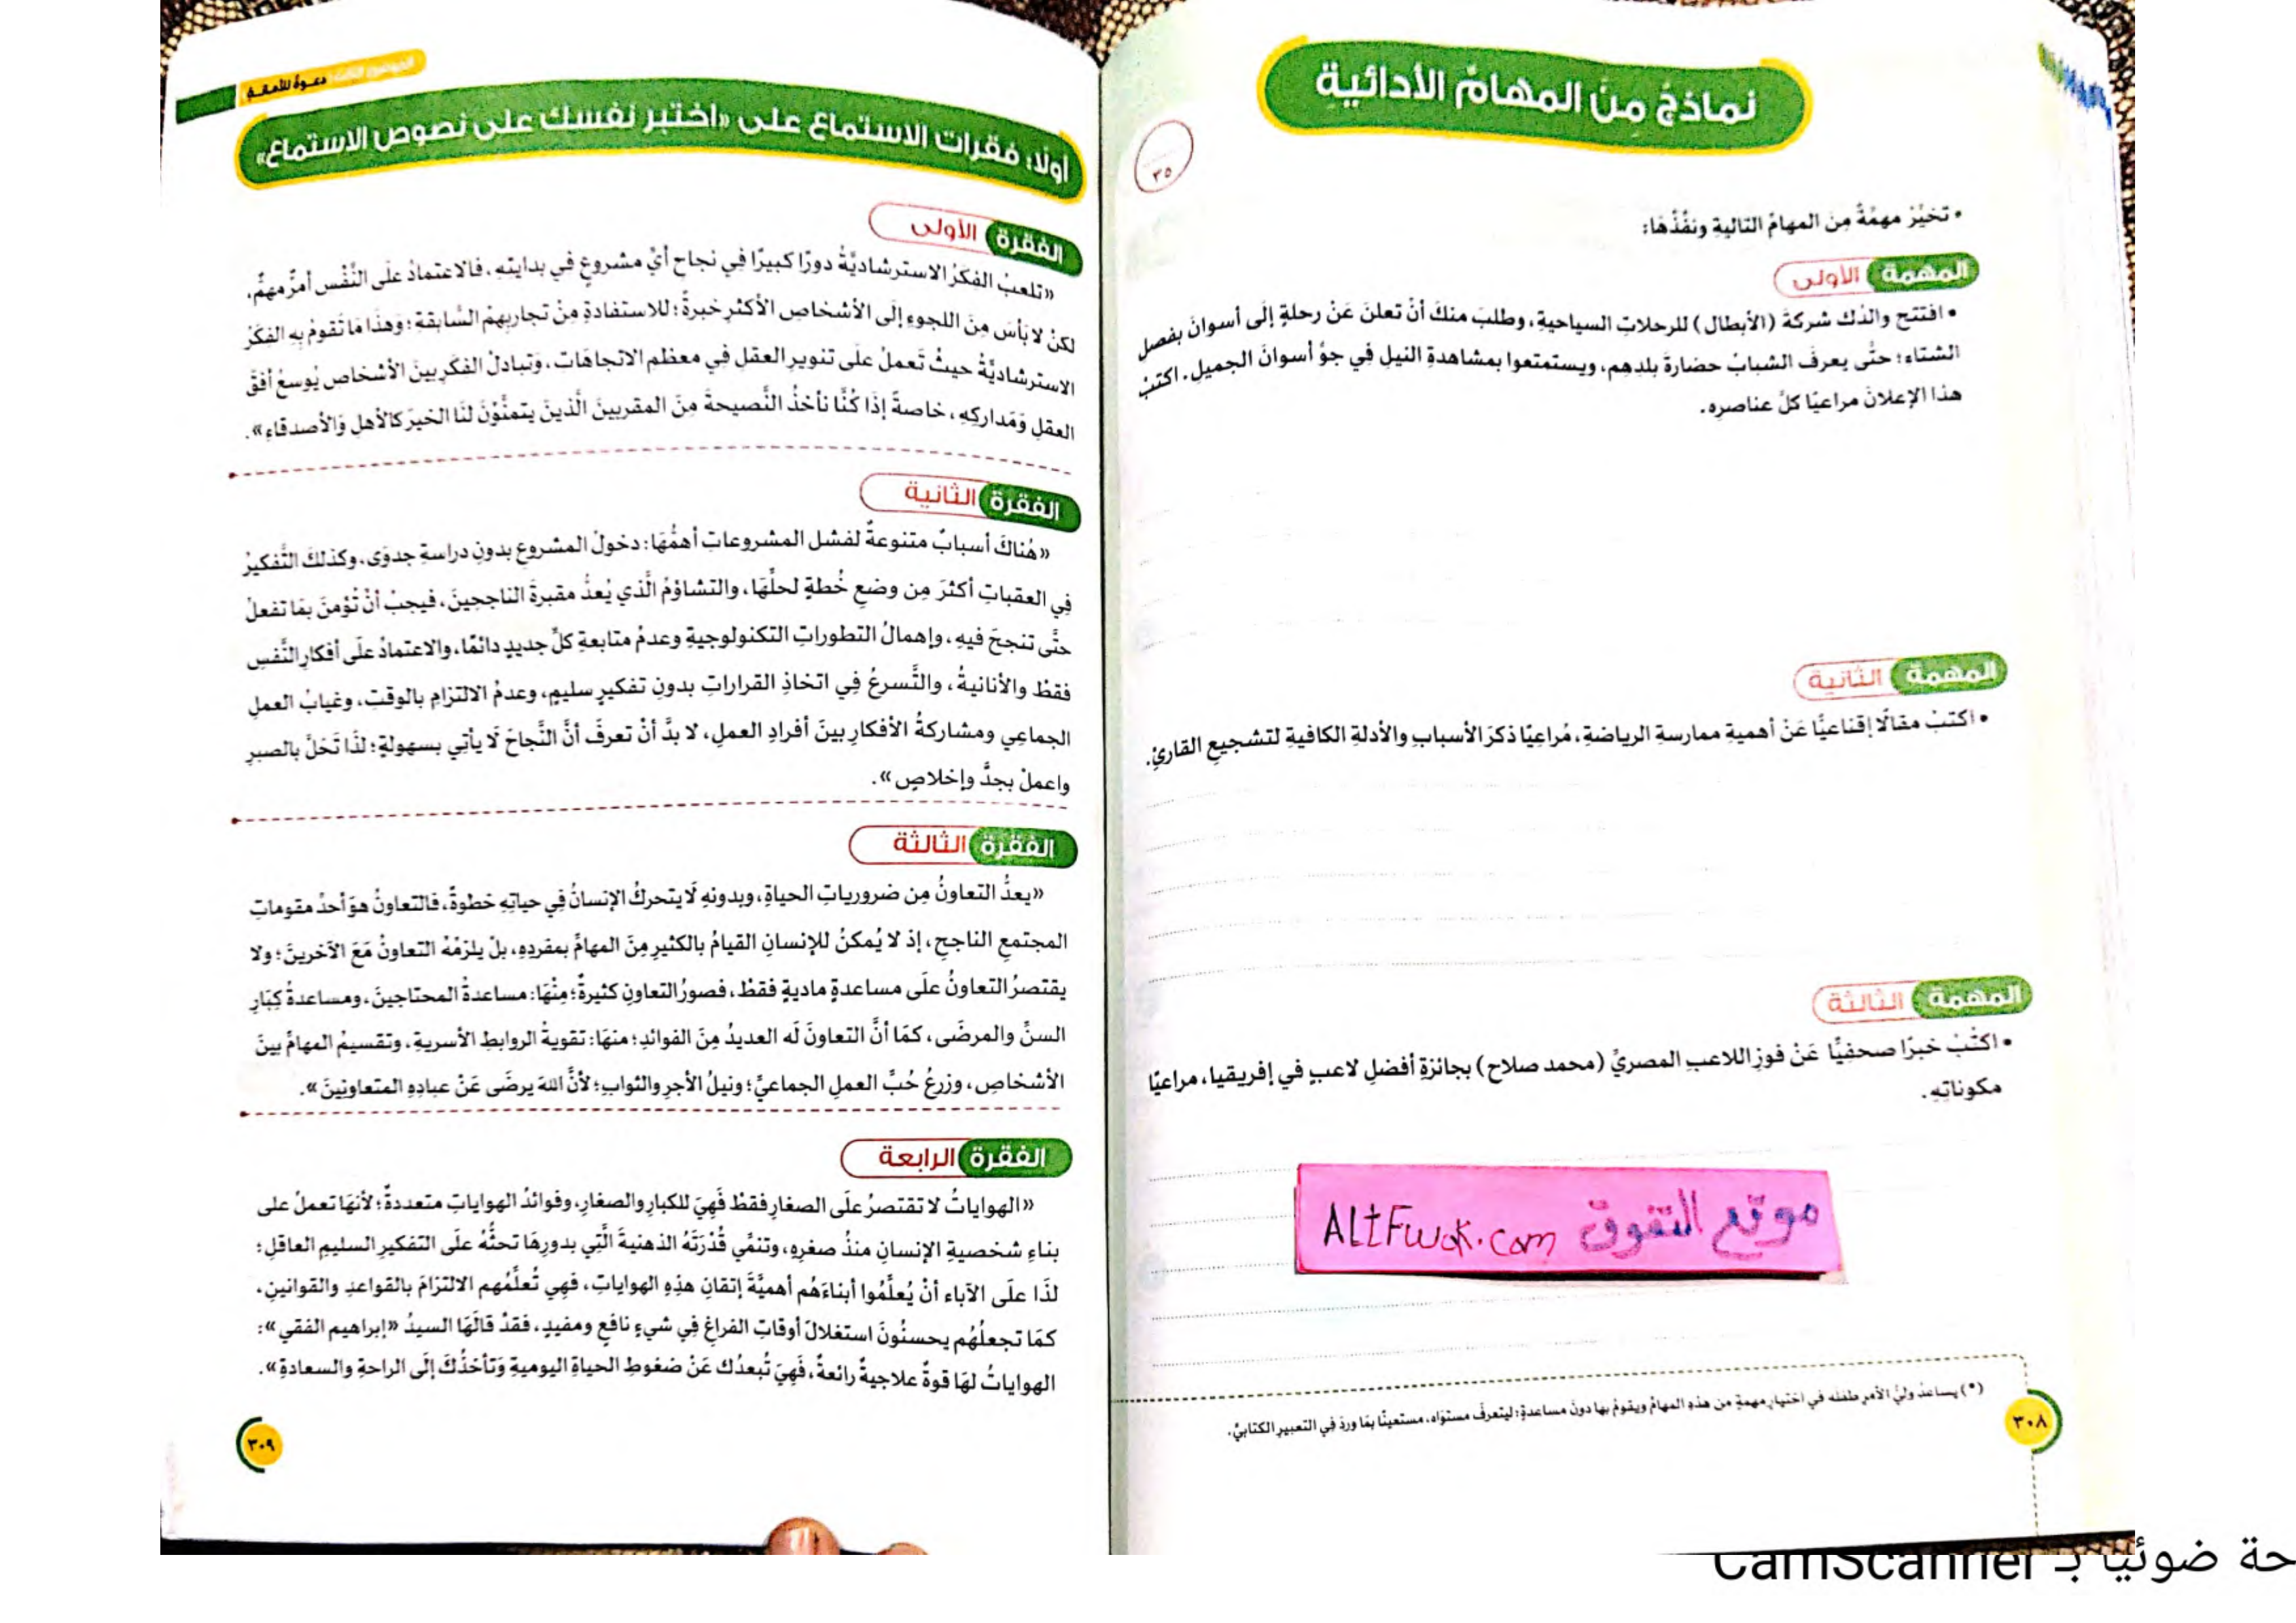 نماذجُ مِنَ المهامِّ الأدائيةِ
٣٥
• تخيَّرْ مهمَّةً مِنَ المهامِّ التاليةِ ونفِّذْهَا:
المهمة الأولى
• افتتح والدُك شركةَ (الأبطال) للرحلاتِ السياحيةِ، وطلبَ منكَ أنْ تعلنَ عَنْ رحلةٍ إلى أسوانَ بفصلِ
الشتاءِ؛ حتَّى يعرفَ الشبابُ حضارةَ بلدِهِم، ويستمتعوا بمشاهدةِ النيلِ في جوِّ أسوانَ الجميلِ. اكتبْ
هذا الإعلانَ مراعيًا كلَّ عناصرِهِ.
المهمة الثانية
• اكتبْ مقالًا إقناعيًّا عَنْ أهميةِ ممارسةِ الرياضةِ، مُراعِيًا ذكرَ الأسبابِ والأدلةِ الكافيةِ لتشجيعِ القارئِ.
المهمة الثالثة
• اكتُبْ خبرًا صحفيًّا عَنْ فوزِ اللاعبِ المصريِّ (محمد صلاح) بجائزةِ أفضلِ لاعبٍ في إفريقيا، مراعيًا
مكوناتِهِ.
موقع التفوق ALtFwok.com
(*) يساعدُ وليُّ الأمرِ طفلَه في اختيارِ مهمةٍ من هذهِ المهامِّ ويقومُ بها دونَ مساعدةٍ؛ ليتعرفَ مستوَاه، مستعينًا بمَا وردَ فِي التعبيرِ الكتابيِّ.
٣٠٨
دعوة للأمل
أولًا: فقرات الاستماع على «اختبر نفسك على نصوص الاستماع»
الفقرة الأولى
«تلعبُ الفكَرُ الاسترشاديَّةُ دورًا كبيرًا فِي نجاحِ أيِّ مشروعٍ في بدايتِهِ، فالاعتمادُ علَى النَّفْسِ أمرٌ مهمٌّ،
لكنْ لا بَأسَ مِنَ اللجوءِ إلَى الأشخاصِ الأكثرِ خبرةً؛ للاستفادةِ مِنْ تجاربِهِمُ السَّابقةِ؛ وَهذَا مَا تَقومُ بِهِ الفكَرُ
الاسترشاديَّةُ حيثُ تَعملُ علَى تنويرِ العقلِ في معظمِ الاتجاهَات، وَتبادلُ الفكَرِ بينَ الأشخاصِ يُوسعُ أفقَ
العقلِ وَمَداركِهِ، خاصةً إذَا كُنَّا نأخذُ النَّصيحةَ مِنَ المقربينَ الَّذينَ يتمنَّوْنَ لنَا الخيرَ كالأهلِ وَالأصدقاءِ».
الفقرة الثانية
«هُناكَ أسبابٌ متنوعةٌ لفشلِ المشروعاتِ أهمُّهَا: دخولُ المشروعِ بدونِ دراسةِ جدوَى، وكذلكَ التَّفكيرُ
فِي العقباتِ أكثرَ مِن وضعِ خُطةٍ لحلِّهَا، والتشاؤمُ الَّذي يُعدُّ مقبرةَ الناجحينَ، فيجبُ أنْ تُؤمنَ بمَا تفعلُ
حتَّى تنجحَ فيهِ، وإهمالُ التطوراتِ التكنولوجيةِ وعدمُ متابعةِ كلِّ جديدٍ دائمًا، والاعتمادُ علَى أفكارِ النَّفسِ
فقطْ والأنانيةُ، والتَّسرعُ فِي اتخاذِ القراراتِ بدونِ تفكيرٍ سليمٍ، وعدمُ الالتزامِ بالوقتِ، وغيابُ العملِ
الجماعِي ومشاركةُ الأفكارِ بينَ أفرادِ العملِ، لا بدَّ أنْ تعرفَ أنَّ النَّجاحَ لَا يأتِي بسهولةٍ؛ لذَا تَحَلَّ بالصبرِ
واعملْ بجدٍّ وإخلاصٍ».
الفقرة الثالثة
«يعدُّ التعاونُ مِن ضرورياتِ الحياةِ، وبدونهِ لَا يتحركُ الإنسانُ فِي حياتِهِ خطوةً، فَالتعاونُ هوَ أحدُ مقوماتِ
المجتمعِ الناجحِ، إذ لَا يُمكنُ للإنسانِ القيامُ بالكثيرِ مِنَ المهامِّ بمفردِهِ، بلْ يلزمُهُ التعاونُ مَعَ الآخرينَ؛ ولا
يقتصرُ التعاونُ علَى مساعدةٍ ماديةٍ فقطْ، فصورُ التعاونِ كثيرةٌ؛ مِنْهَا: مساعدةُ المحتاجينَ، ومساعدةُ كِبَارِ
السنِّ والمرضَى، كمَا أنَّ التعاونَ لَه العديدُ مِنَ الفوائدِ؛ منهَا: تقويةُ الروابطِ الأسريةِ، وتقسيمُ المهامِّ بينَ
الأشخاصِ، وزرعُ حُبِّ العملِ الجماعيِّ؛ ونيلُ الأجرِ والثوابِ؛ لأنَّ اللهَ يرضَى عَنْ عبادِهِ المتعاونِينَ».
الفقرة الرابعة
«الهواياتُ لا تقتصرُ علَى الصغارِ فقطْ فَهِيَ للكبارِ والصغارِ، وفوائدُ الهواياتِ متعددةٌ؛ لأنهَا تعملُ على
بناءِ شخصيةِ الإنسانِ منذُ صغرِهِ، وتنمِّي قُدْرَتَهُ الذهنيةَ الَّتِي بدورِهَا تحثُّهُ علَى التفكيرِ السليمِ العاقلِ؛
لذَا علَى الآباءِ أنْ يُعلِّمُوا أبناءَهُم أهميَّةَ إتقانِ هذِهِ الهواياتِ، فَهِي تُعلِّمُهم الالتزامَ بالقواعدِ والقوانينِ،
كمَا تجعلُهُم يحسنُونَ استغلالَ أوقاتِ الفراغِ فِي شيءٍ نافعٍ ومفيدٍ، فقدْ قالَهَا السيدُ «إبراهيم الفقي»:
الهواياتُ لهَا قوةٌ علاجيةٌ رائعةٌ، فَهِيَ تُبعدُك عَنْ ضغوطِ الحياةِ اليوميةِ وَتأخذُكَ إلَى الراحةِ والسعادةِ».
٣٠٩
حة ضوئيًا بـ CamScanner